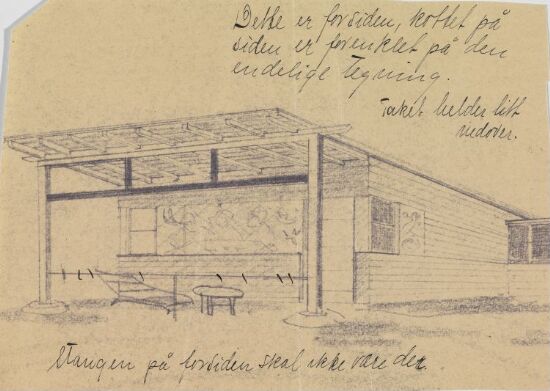 Dette er forsiden, kottet på
siden er forenklet på den
endelige tegning.
Taket helder litt
nedover.
Stangen på forsiden skal ikke være der